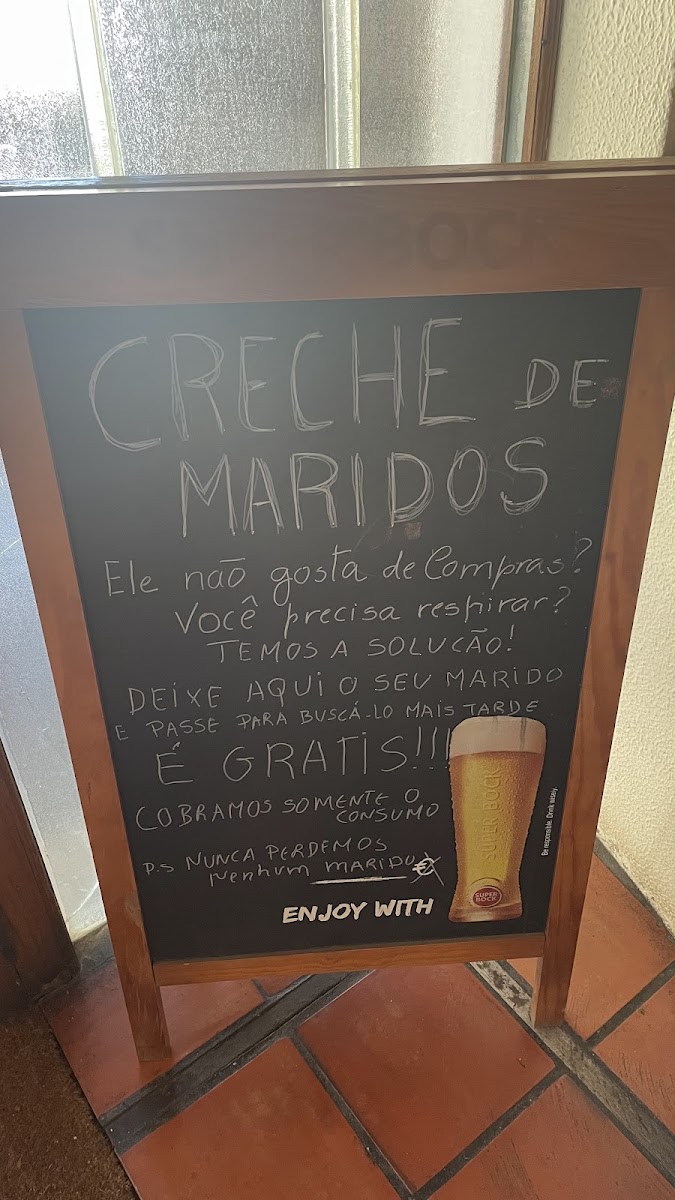 SUPER BOCK
CRECHE DE
MARIDOS
Ele não gosta de Compras?
Você precisa respirar?
TEMOS A SOLUCÃO!
DEIXE AQUI O SEU MARIDO
E PASSE PARA BUSCÁ-LO MAIS TARDE
É GRATIS!!!
COBRAMOS SOMENTE O
CONSUMO
P.S NUNCA PERDEMOS
Nenhum MARIDO
ENJOY WITH
SUPER BOCK
SUPER
BOCK
Be responsible. Drink wisely.